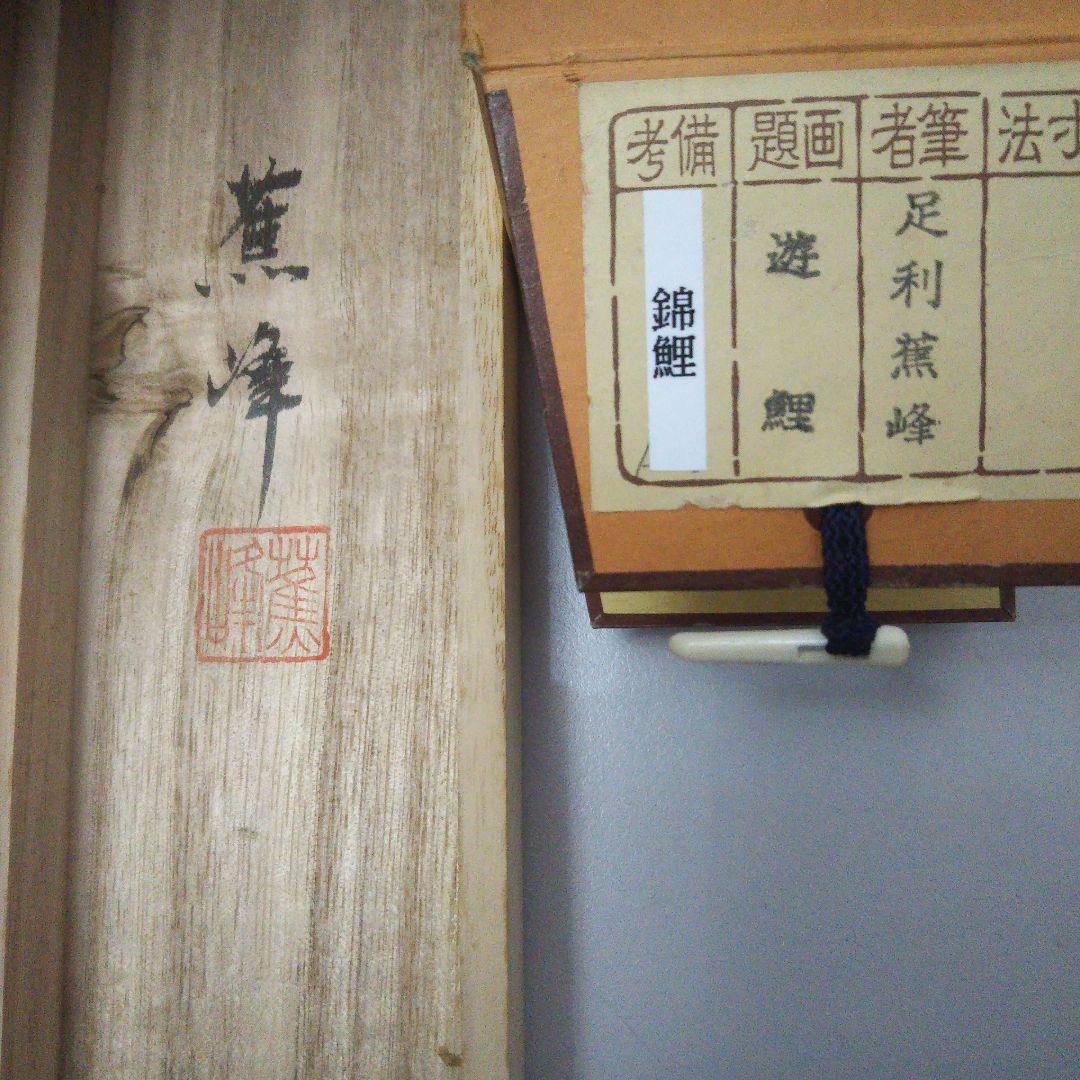 蕉峰
蕉峰
寸法
筆者
足利蕉峰
画題
遊鯉
備考
錦鯉